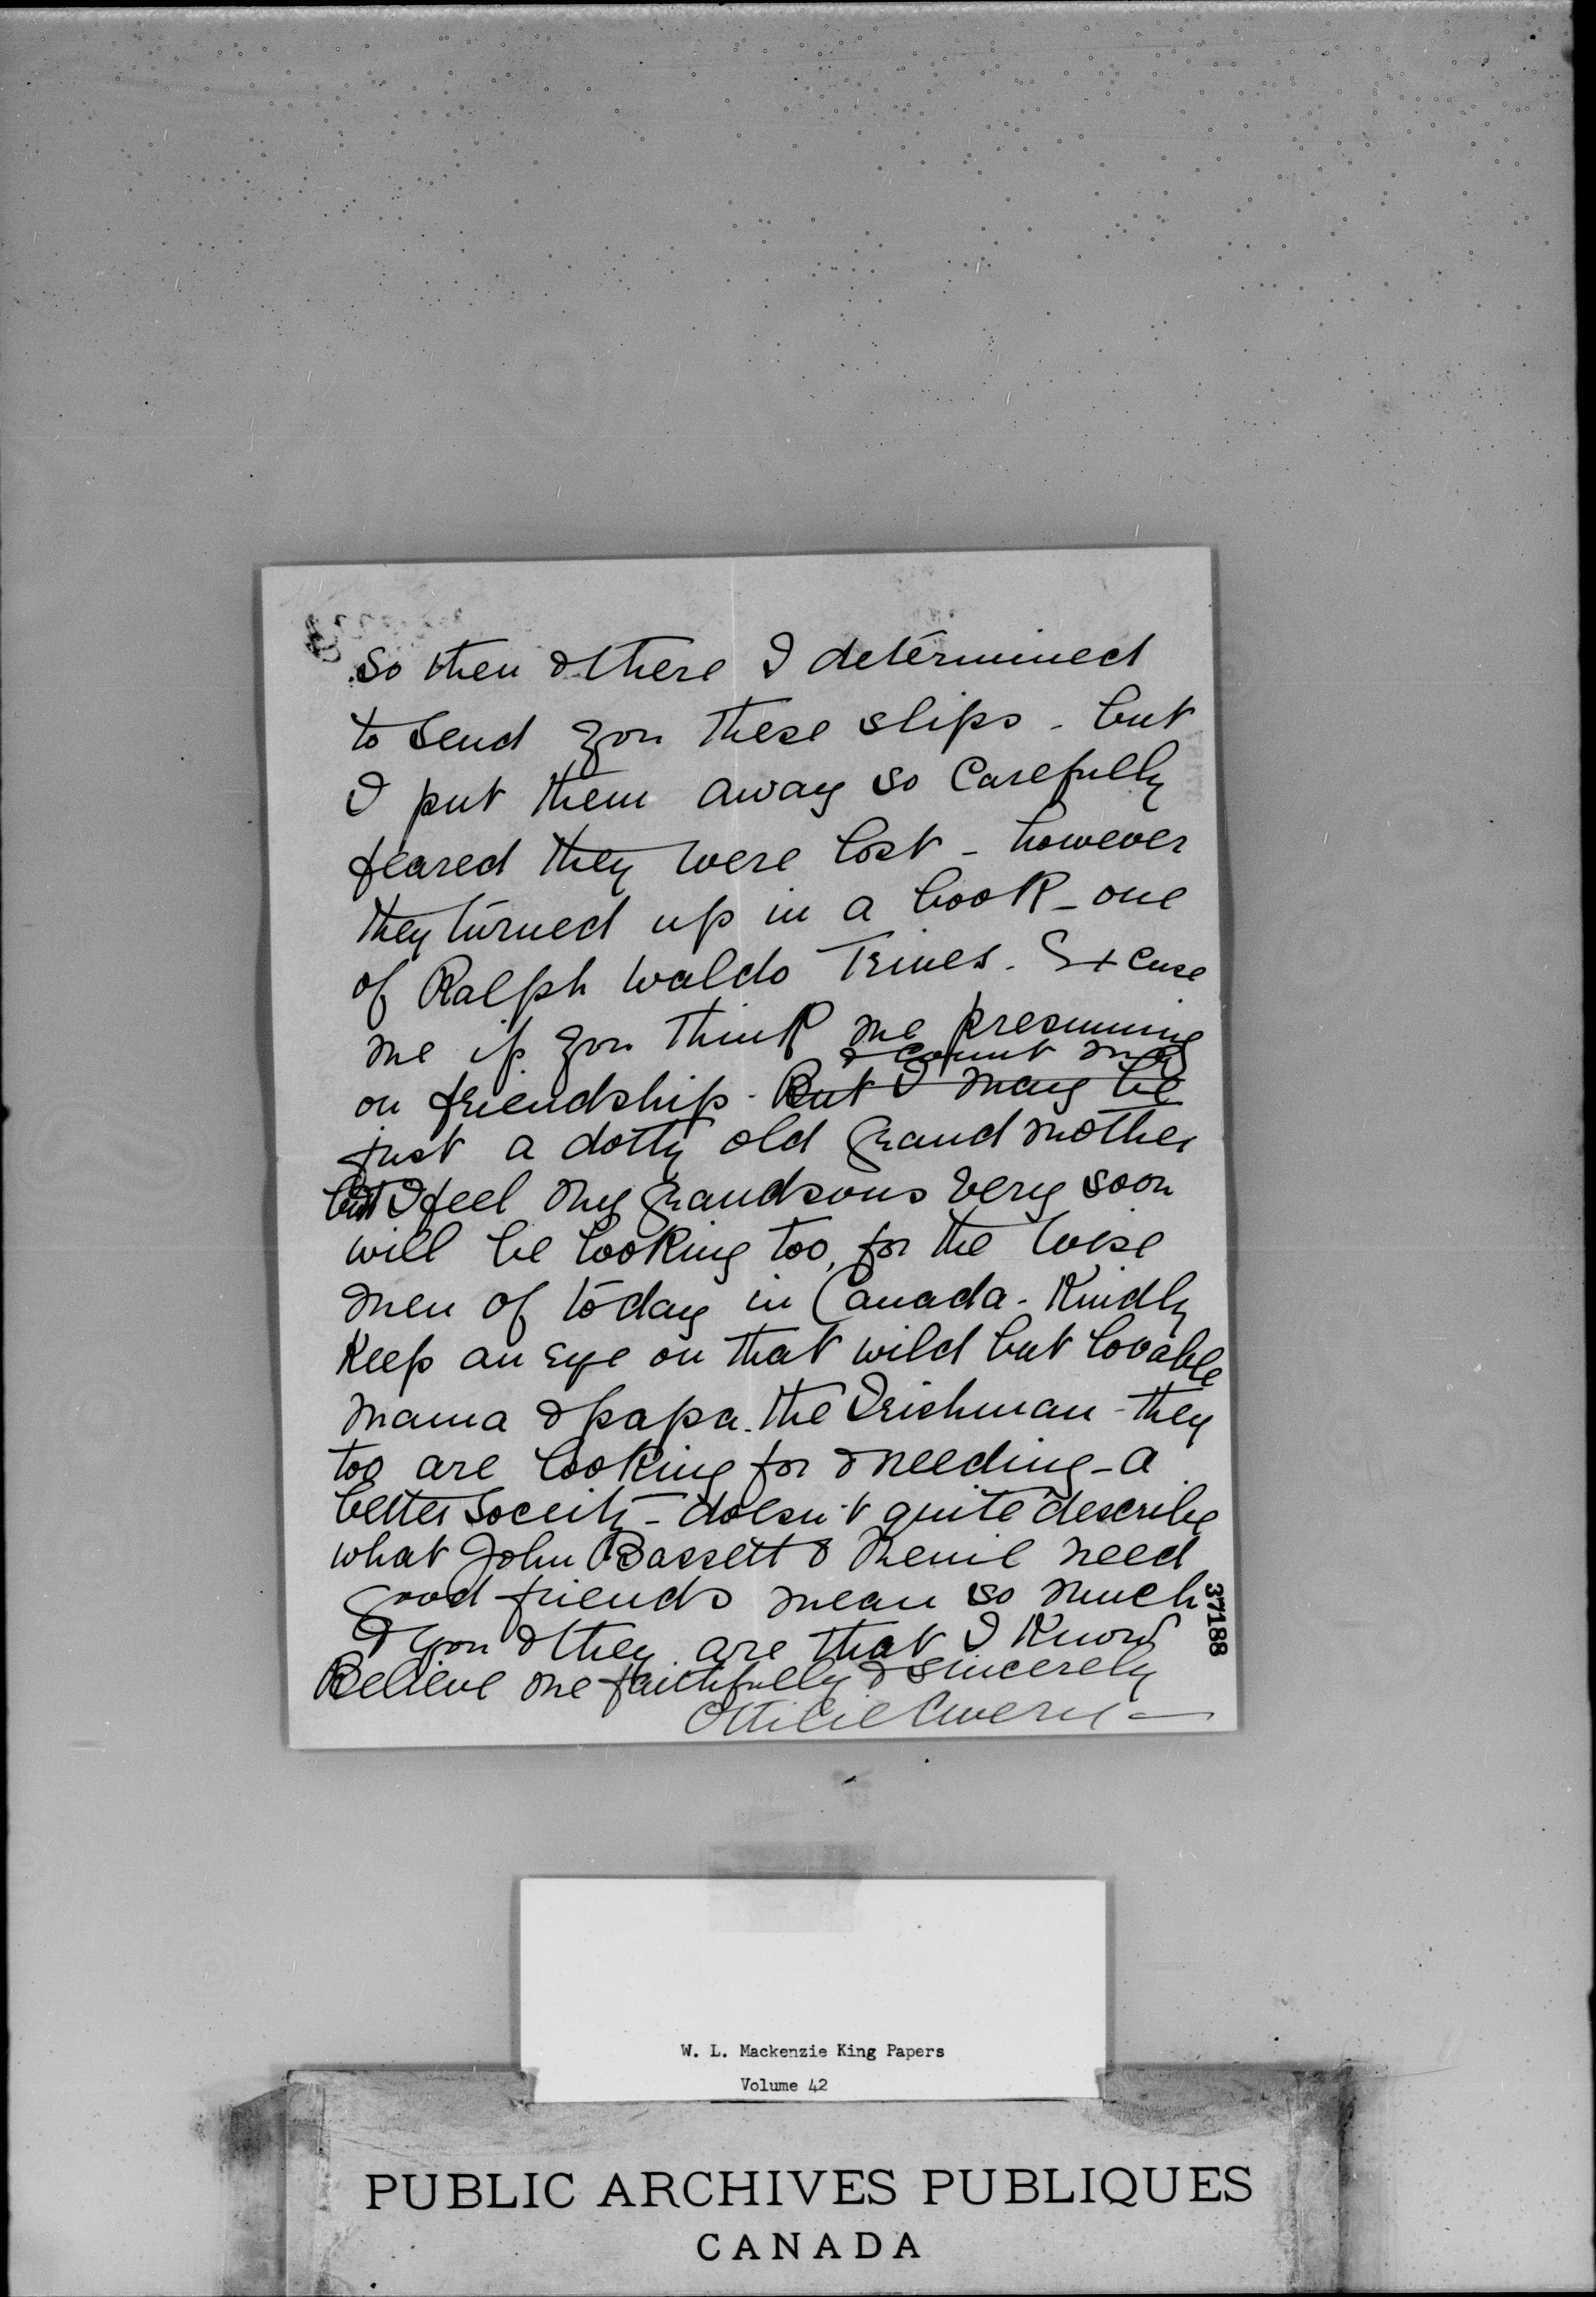 so then & there I determined
to send you these slips - but
I put them away so carefully
feared they were lost - however
they turned up in a book - one
of Ralph Waldo Trines. Excuse
me if you think me presuming
& count me
on friendship - But I may be
just a dotty old grandmother
but I feel my grandsons very soon
will be looking too, for the wise
men of today in Canada - Kindly
keep an eye on that wild but lovable
mama & papa. the Irishman - they
too are looking for & needing - a
better Soceity - doesn't quite describe
what John Bassett & need
good friends mean so much
& you & they are that I know
Believe me faithfully & sincerely
Ottilie Avery -
37188
W. L. Mackenzie King Papers
Volume 42
PUBLIC ARCHIVES PUBLIQUES
CANADA